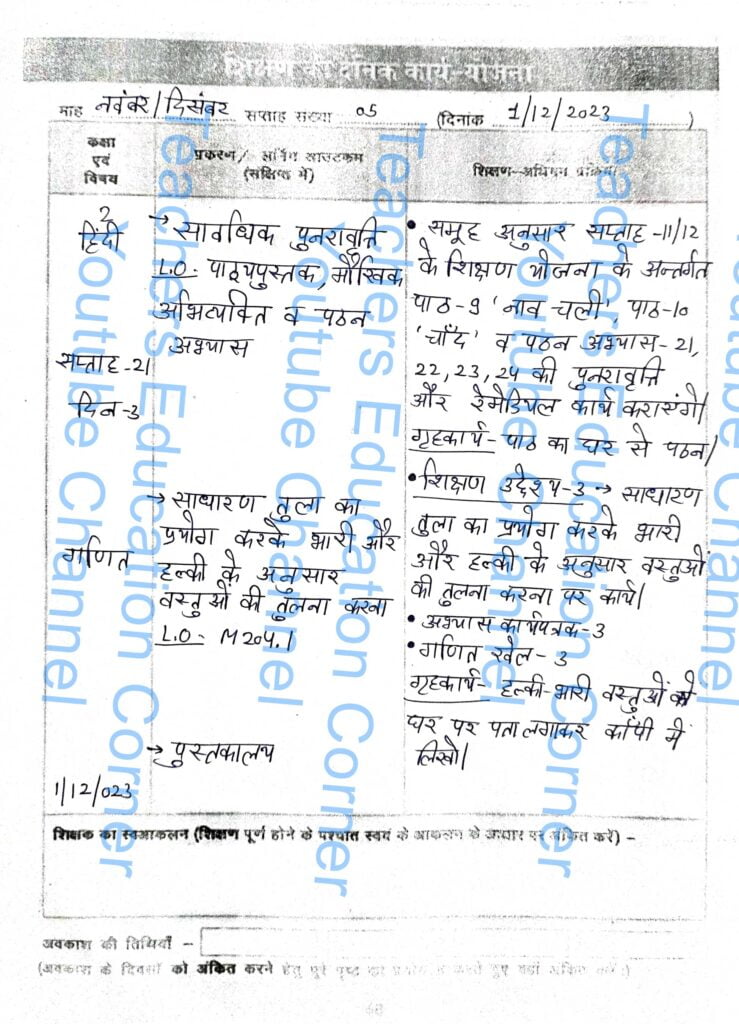 शिक्षण की दैनिक कार्य-योजना
माह नवंबर/दिसंबर सप्ताह संख्या 05 (दिनांक 1/12/2023)
कक्षा एवं विषय
प्रकरण/ लर्निंग आउटकम (संक्षिप्त में)
शिक्षण-अधिगम प्रक्रिया
2
हिंदी
सप्ताह-21
दिन-3
→ सावधिक पुनरावृत्ति
L.O- पाठ्यपुस्तक, मौखिक
अभिव्यक्ति व पठन
अभ्यास
• समूह अनुसार सप्ताह -11/12
के शिक्षण योजना के अन्तर्गत
पाठ-9 'नाव चली', पाठ-10
'चाँद' व पठन अभ्यास-21,
22, 23, 24 की पुनरावृत्ति
और रेमेडियल कार्य करासंगे।
गृहकार्य- पाठ का घर से पठन।
गणित
→ साधारण तुला का
प्रयोग करके भारी और
हल्की के अनुसार
वस्तुओं की तुलना करना
L.O- M204.1
• शिक्षण उद्देश्य-3 → साधारण
तुला का प्रयोग करके भारी
और हल्की के अनुसार वस्तुओं
की तुलना करना पर कार्य।
• अभ्यास कार्यपत्रक-3
• गणित खेल-3
गृहकार्य- हल्की-भारी वस्तुओं को
घर पर पता लगाकर कॉपी में
लिखो।
→ पुस्तकालय
1/12/023
शिक्षक का स्वआकलन (शिक्षण पूर्ण होने के पश्चात स्वयं के आकलन के आधार पर अंकित करें) –
अवकाश की तिथियाँ –
(अवकाश के दिवसों को अंकित करने हेतु पूरे पृष्ठ का प्रयोग न करते हुए यहाँ अंकित करें।)
Teachers Education Corner
Youtube Channel
Teachers Education Corner
Youtube Channel
Teachers Education Corner
Youtube Channel